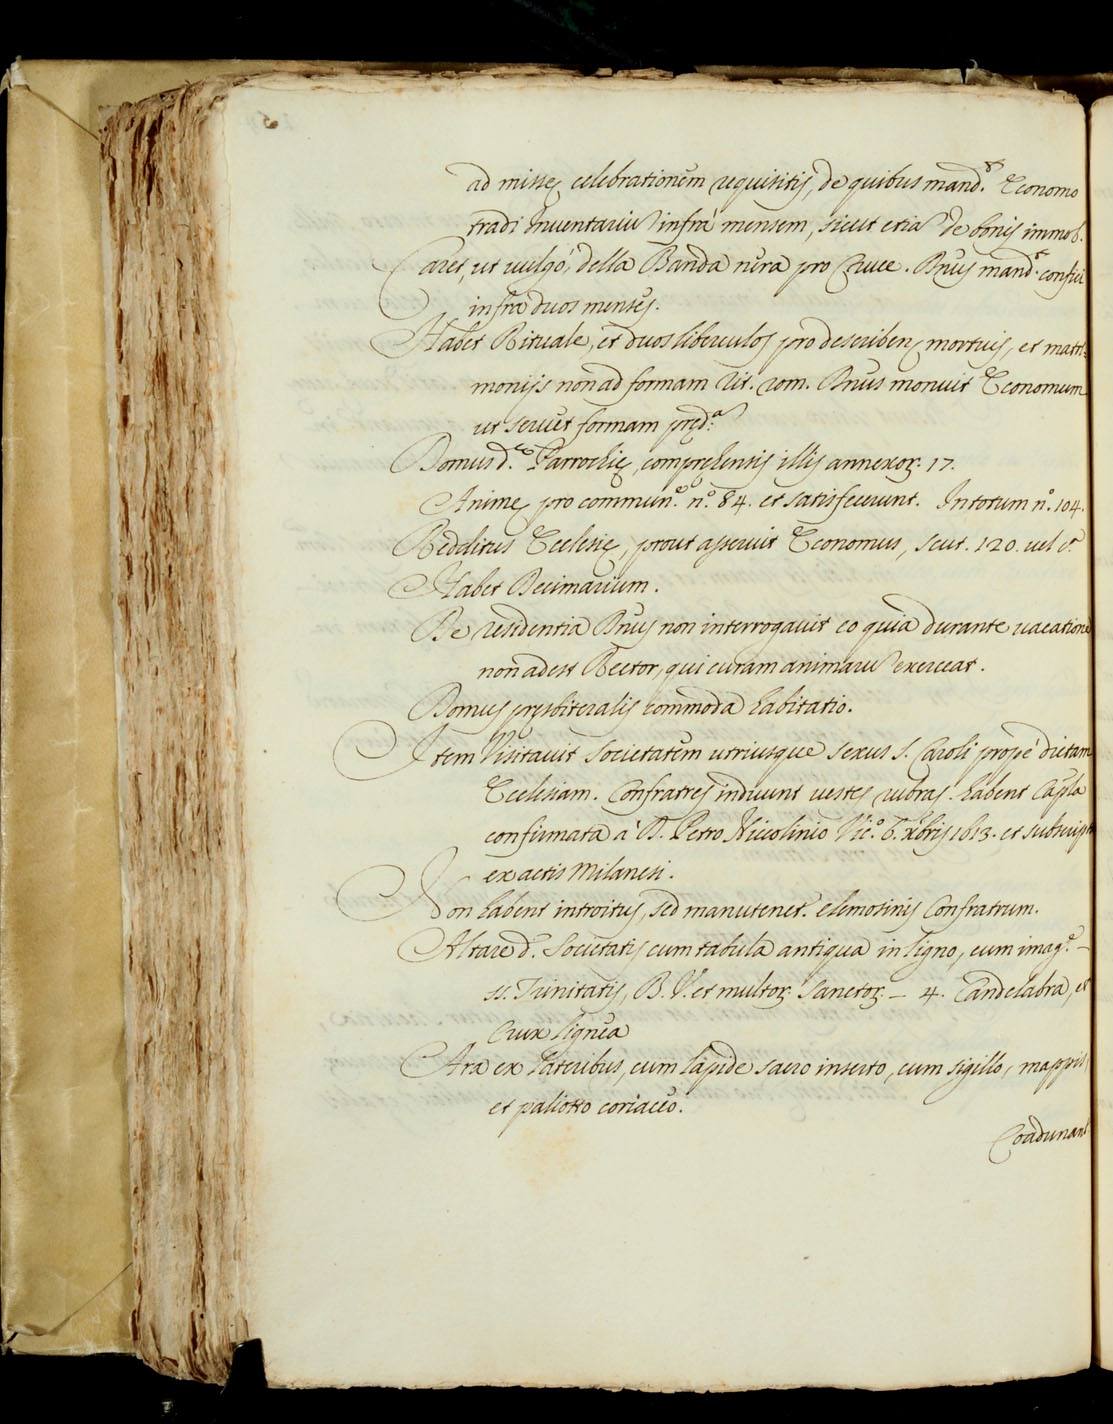 ad missę celebrationem requisitis, de quibus mand.t Economo
tradi Inventariũ infra mensem, sicut etiã de bonis immob.
Caret, ut vulgò, della Banda nera pro Cruce. Dnus mand.t confici
infra duos menses.
Habet Rituale, et duos liberculos pro describen mortuis, et matri:
monijs non ad formam Rit. rom. Dnus monuit Economum
ut servet formam pręd.a
Domus d.ę Parrochię, comprehensis illis annexoꝝ. 17.
Animę pro commun.e n.o 84. et satisfecerunt. In totum n.o 104.
Redditus Ecclesię, prout asseruit Economus, scut. 120. vel c.a
Habet Decimarium.
De residentia Dnus non interrogavit eo quia durante vacatione
non adest Rector, qui curam animarũ exerceat.
Domus pręsbiteralis commoda habitatio.
Item Visitavit Societatem utriusque sexus S. Caroli propè dictam
Ecclesiam. Confratres induunt vestes rubras. habent Capla
confirmata à D. Petro Niccolinio Vic.o 6. xbris 1613. et subscript
ex actis Milanesi.
Non habent introitus, sed manutenet. elemosinis Confratrum.
Altare d.ę Societatis cum tabula antiqua in ligno, cum imag.e -
SS. Trinitatis, B. V. et multoꝝ Sanctoꝝ. - 4. Candelabra, et
Crux lignea
Ara ex lateribus, cum lapide sacro inserto, cum sigillo, mappis,
et paliotto coriaceo.
Coadunant